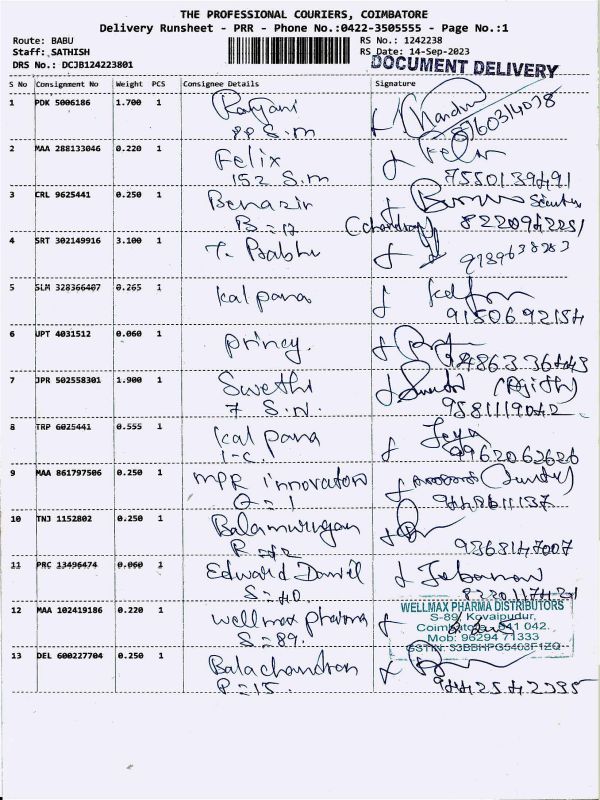 THE PROFESSIONAL COURIERS, COIMBATORE
Delivery Runsheet - PRR - Phone No.:0422-3505555 - Page No.:1
Route: BABU RS No.: 1242238
Staff: SATHISH RS Date: 14-Sep-2023
DRS No.: DCJB124223801 DOCUMENT DELIVERY
S No Consignment No Weight PCS Consignee Details Signature
1 PDK 5006186 1.700 1
PP S.M 8760314078
2 MAA 288133046 0.220 1 Felix Felix
152 S.M 7550139491
3 CRL 9625441 0.250 1 Benazir
B=12 8220942251
4 SRT 302149916 3.100 1 T. Prabhu
5 SLM 328366407 0.265 1 Kalpana
9150692154
6 UPT 4031512 0.060 1 princy.
7 JPR 502558301 1.900 1 Swethi (Ajith)
7 S.N. 9581119042
8 TRP 6025441 0.555 1 Kalpana Jeya
1-C. 9962062626
9 MAA 861797506 0.250 1 MPR innovators
10 TNJ 1152802 0.250 1 Balamurugan
9368147007
11 PRC 13496474 0.060 1 Edward Daniel
S=40
12 MAA 102419186 0.220 1 wellmax pharma
S=89.
WELLMAX PHARMA DISTRIBUTORS
S-89, Kovaipudur,
Coimbatore - 641 042.
Mob: 96294 71333
GSTIN: 33BBHPG5403F1ZQ
13 DEL 600227704 0.250 1 Balachandran
P=15.